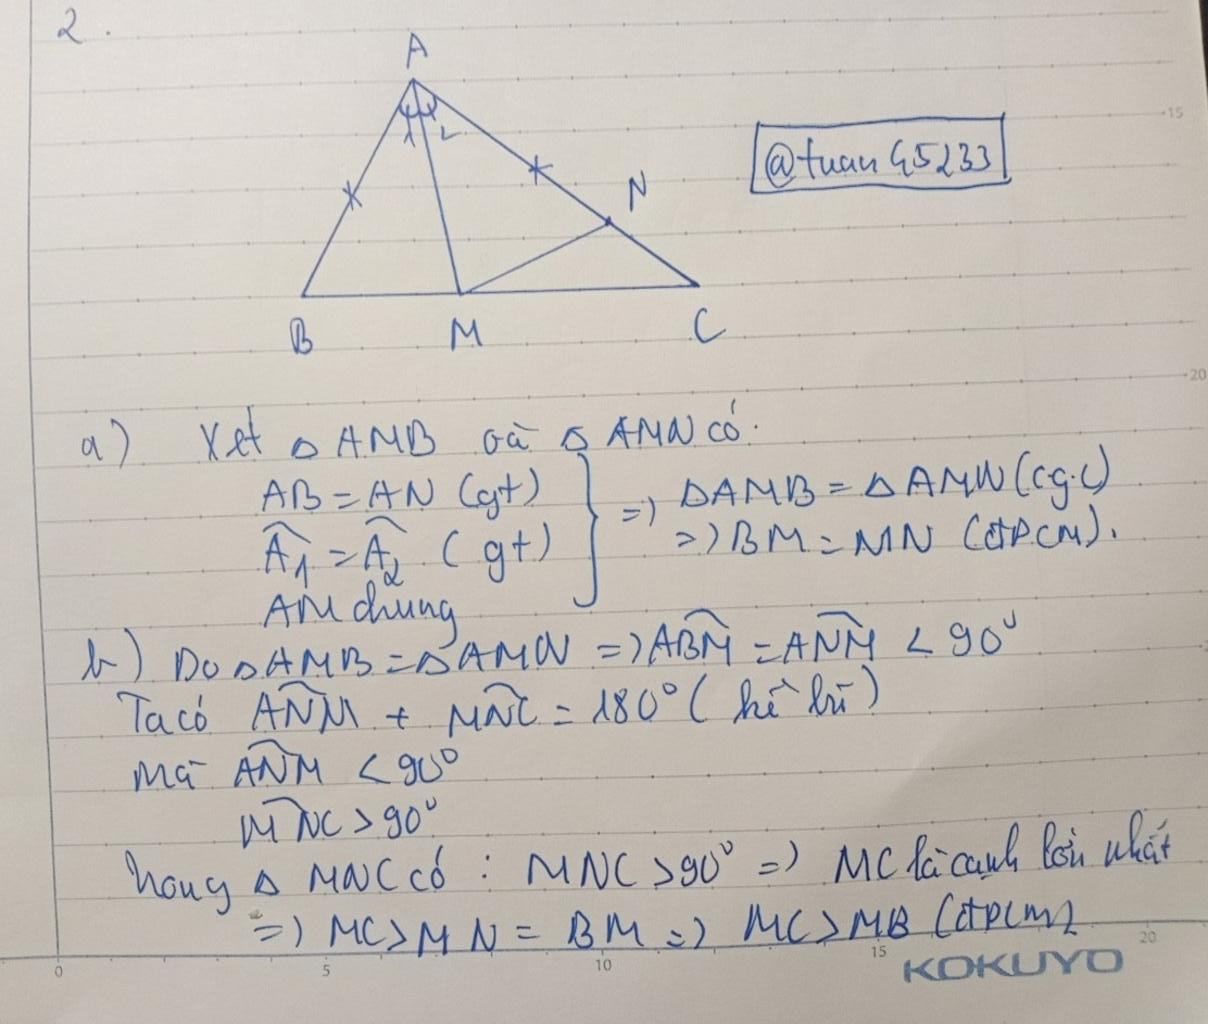 2.
A
1 2
N
B M C
@tuan45233
a) Xét △ AMB và △ AMN có:
AB = AN (gt)
Â1 = Â2 (gt)
AM chung
=> △AMB = △AMN (cg.c)
=> BM = MN (đpcm).
b) Do △AMB = △AMN => ABM̂ = ANM̂ < 90°
Ta có ANM̂ + MNĈ = 180° (kề bù)
Mà ANM̂ < 90°
MNĈ > 90°
Trong △ MNC có : MNC > 90° => MC là cạnh lớn nhất
=> MC > MN = BM => MC > MB (đpcm)
0 5 10 15 20
15
20
KOKUYO